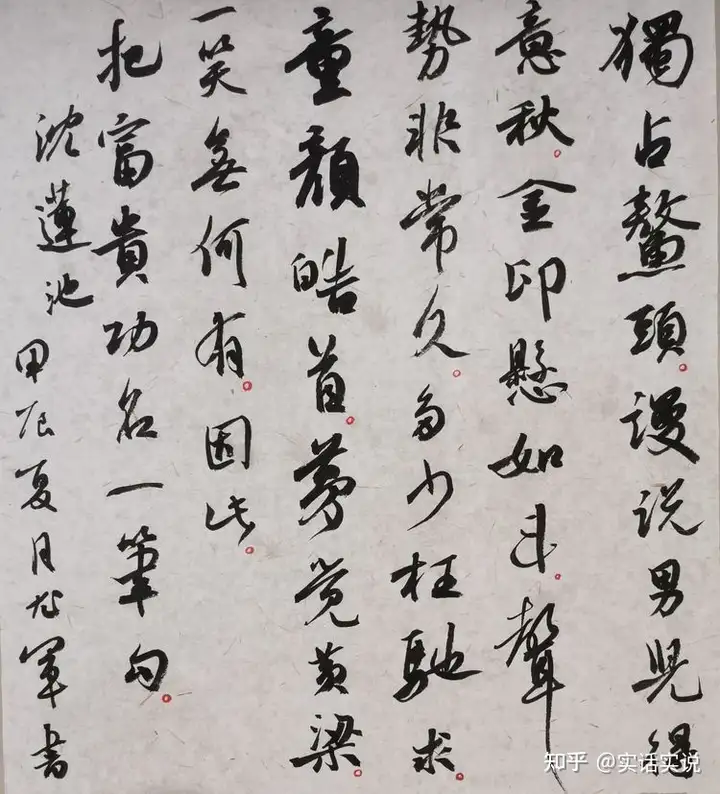 獨占鰲頭。謾说男児得
意秋。金印懸如斗。聲
勢非常久。多少枉馳求。
童顏皓首。夢觉黄梁。
一笑無何有。因此。
把富貴功名一筆勾。
沈蓮池
甲辰夏月軍書
知乎 @实话实说